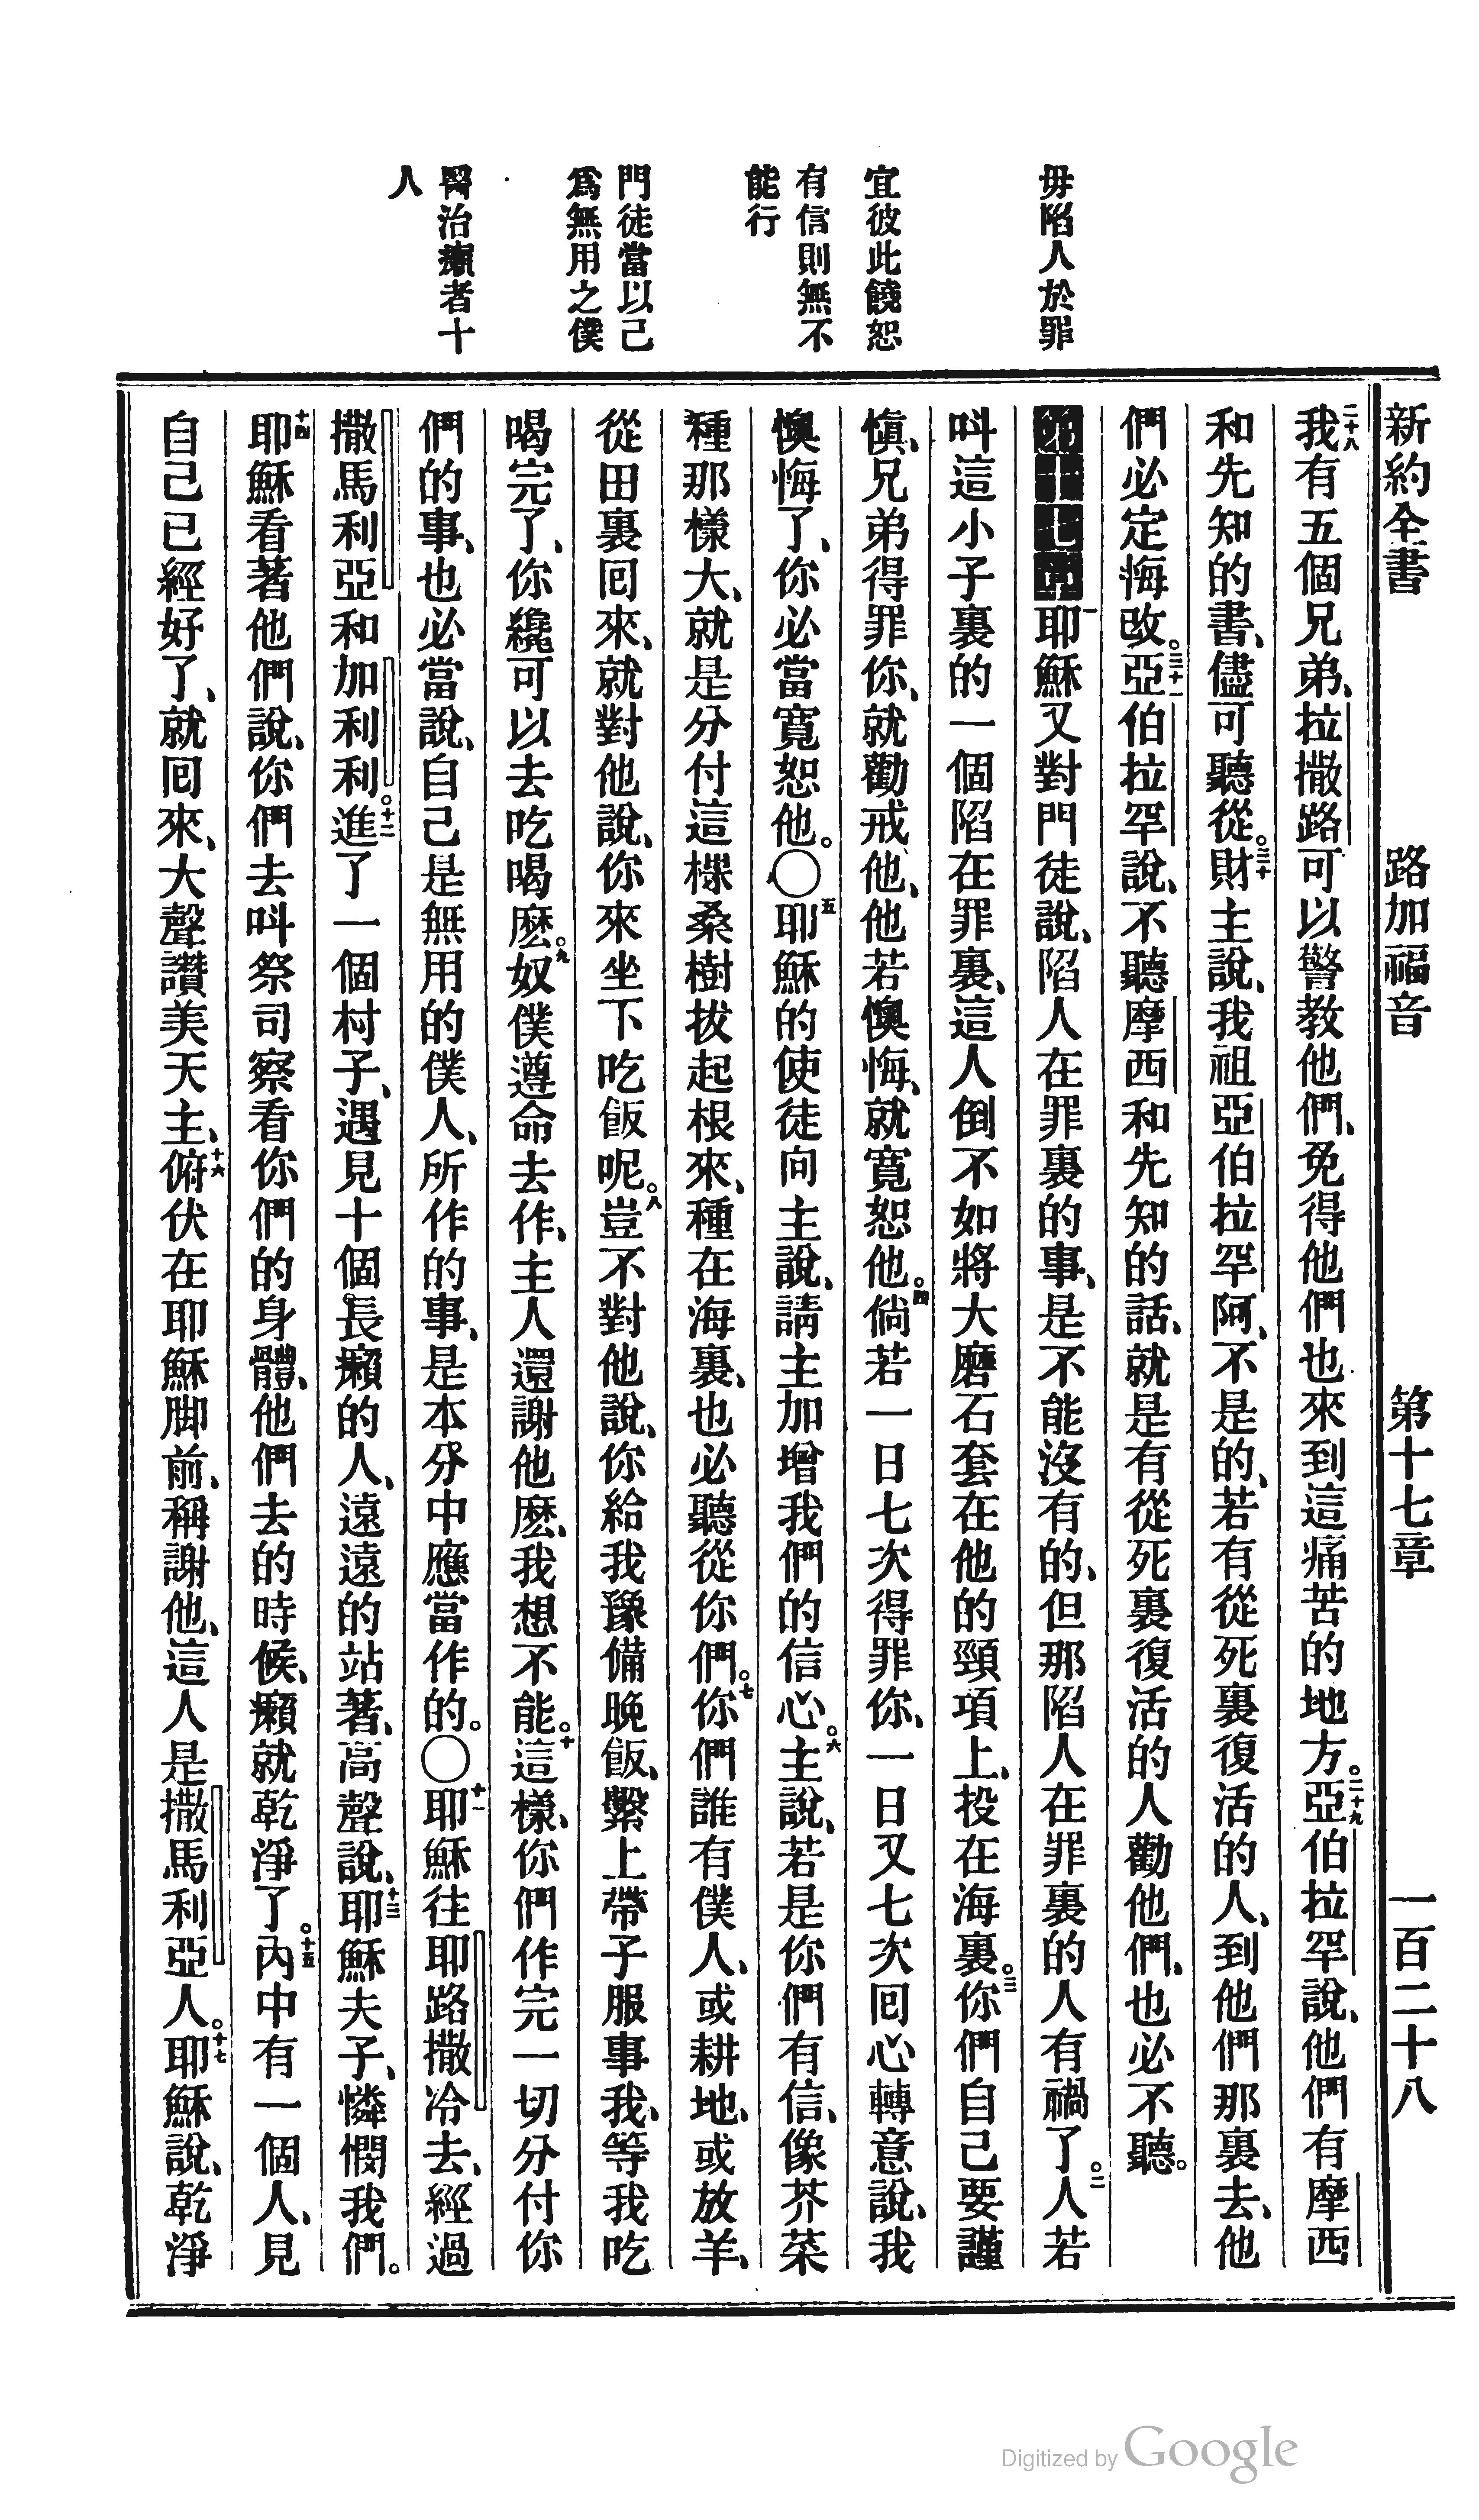 新約全書 路加福音 第十七章 一百二十八
毋陷人於罪
宜彼此饒恕
有信則無不
能行
門徒當以己
爲無用之僕
醫治癩者十
人
二十八我有五個兄弟、拉撒路可以警教他們、免得他們也來到這痛苦的地方。二十九亞伯拉罕說、他們有摩西
和先知的書、儘可聽從。三十財主說、我祖亞伯拉罕阿、不是的、若有從死裏復活的人、到他們那裏去、他
們必定悔改。三十一亞伯拉罕說、不聽摩西和先知的話、就是有從死裏復活的人勸他們、也必不聽。
第十七章 一耶穌又對門徒說、陷人在罪裏的事、是不能沒有的、但那陷人在罪裏的人有禍了。二人若
呌這小子裏的一個陷在罪裏、這人倒不如將大磨石套在他的頸項上、投在海裏。三你們自己要謹
愼、兄弟得罪你、就勸戒他、他若懊悔、就寬恕他。四倘若一日七次得罪你、一日又七次回心轉意說、我
懊悔了、你必當寬恕他。○五耶穌的使徒向主說、請主加增我們的信心。六主說、若是你們有信、像芥菜
種那樣大、就是分付這棵桑樹拔起根來、種在海裏、也必聽從你們。七你們誰有僕人、或耕地、或放羊、
從田裏囘來、就對他說、你來坐下吃飯呢。八豈不對他說、你給我豫備晚飯、繫上帶子服事我、等我吃
喝完了、你纔可以去吃喝麽。九奴僕遵命去作、主人還謝他麽、我想不能。十這樣、你們作完一切分付你
們的事、也必當說、自己是無用的僕人、所作的事、是本分中應當作的。○十一耶穌往耶路撒冷去、經過
撒馬利亞和加利利。十二進了一個村子、遇見十個長癩的人、遠遠的站著、高聲說、十三耶穌夫子、憐憫我們。
十四耶穌看著他們說、你們去呌祭司察看你們的身體、他們去的時候、癩就乾淨了。十五內中有一個人、見
自己已經好了、就囘來、大聲讚美天主、十六俯伏在耶穌脚前、稱謝他、這人是撒馬利亞人。十七耶穌說、乾淨
Digitized by Google